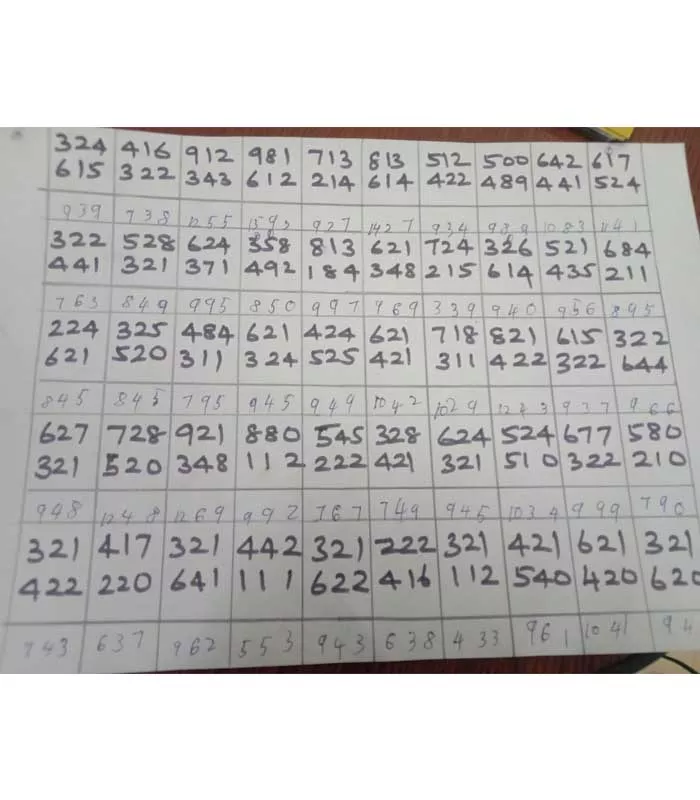 324 416 912 981 713 813 512 500 642 617
615 322 343 612 214 614 422 489 441 524
939 738 1255 1593 927 1427 934 989 1083 1141
322 528 624 358 813 621 724 326 521 684
441 321 371 492 184 348 215 614 435 211
763 849 995 850 997 969 339 940 956 895
224 325 484 621 424 621 718 821 615 322
621 520 311 324 525 421 311 422 322 644
845 845 795 945 949 1042 1029 1243 937 966
627 728 921 880 545 328 624 524 677 580
321 520 348 112 222 421 321 510 322 210
948 1248 1269 992 767 749 945 1034 999 790
321 417 321 442 321 222 321 421 621 321
422 220 641 111 622 416 112 540 420 620
743 637 962 553 943 638 433 961 1041 94